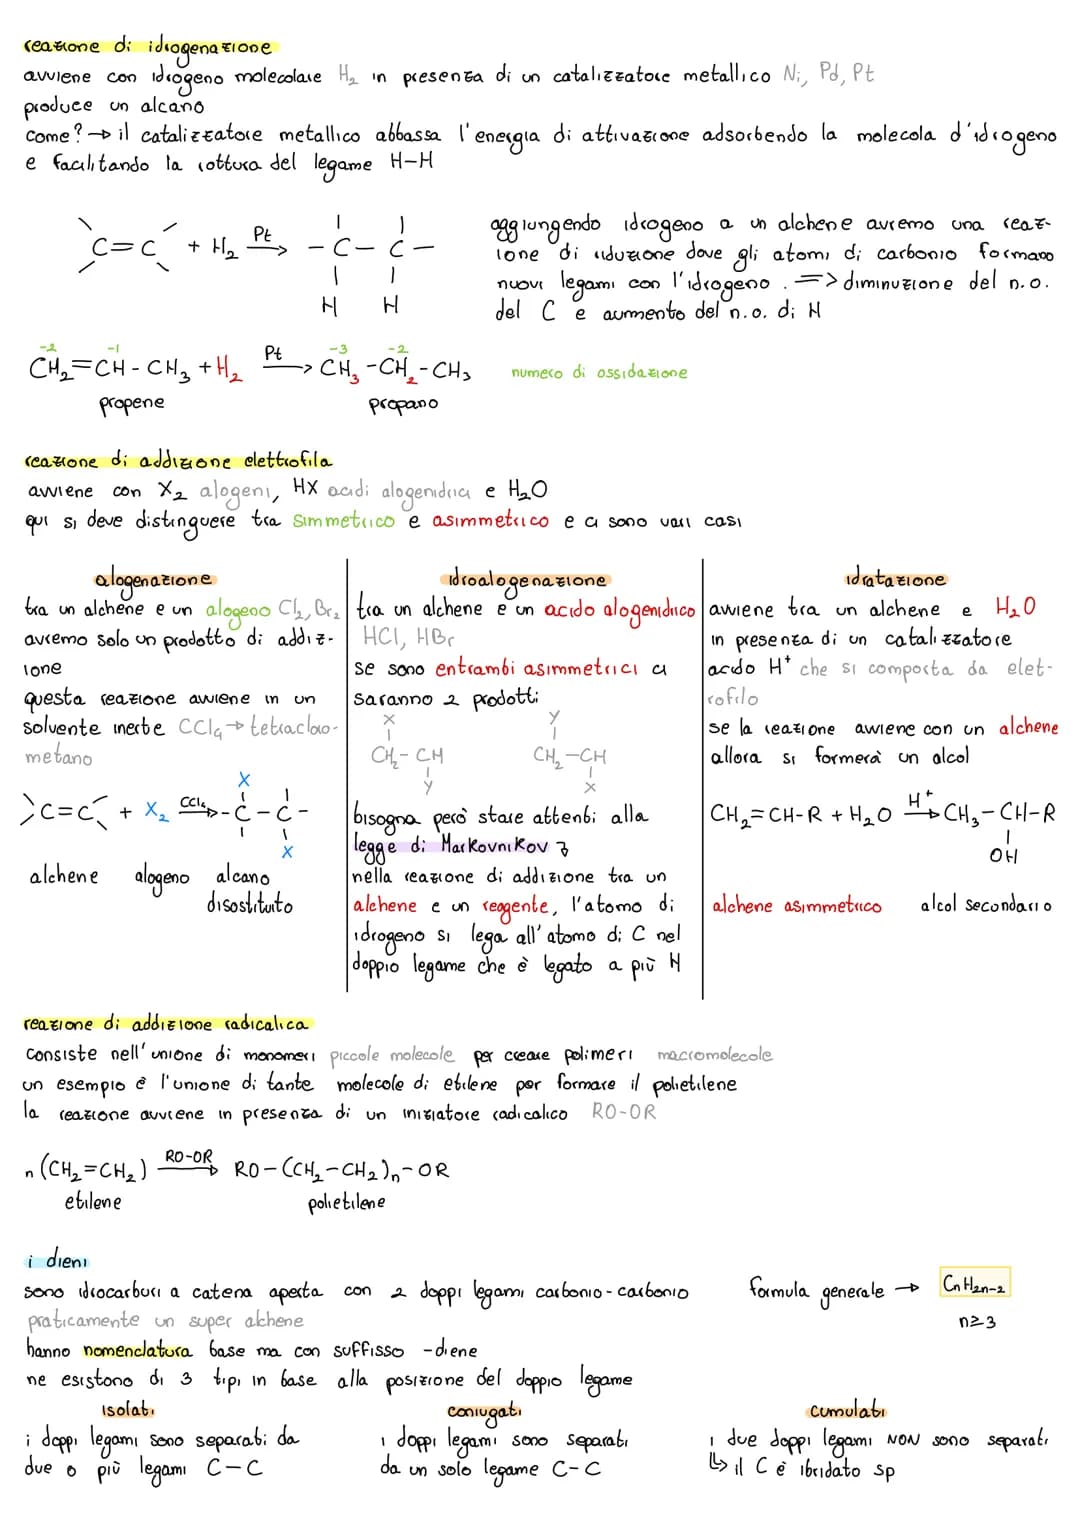 reazione di idrogenazione
avviene con idrogeno molecolare H₂ in presenza di un catalizzatore metallico Ni, Pd, Pt
produce un alcano
come? → il catalizzatore metallico abbassa l'energia di attivazione adsorbendo la molecola d'idrogeno
e facilitando la rottura del legame H-H
C=C + H₂ Pt → -C-C-
H H
aggiungendo idrogeno a un alchene avremo una reaz-
ione di riduzione dove gli atomi di carbonio formano
nuovi legami con l'idrogeno. => diminuzione del n.o.
del C e aumento del n.o. di H
-2 -1 Pt -3 -2
CH₂=CH-CH₃ + H₂ → CH₃-CH₂-CH₃ numero di ossidazione
propene propano
reazione di addizione elettrofila
avviene con X₂ alogeni, HX acidi alogenidrici e H₂O
qui si deve distinguere tra simmetrico e asimmetrico e ci sono vari casi
alogenazione
tra un alchene e un alogeno Cl₂, Br₂
avremo solo un prodotto di addiz-
ione
questa reazione avviene in un
solvente inerte CCl₄ → tetracloro-
metano
X
C=C + X₂ CCl₄ → -C-C-
X
alchene alogeno alcano
disostituto
idroalogenazione
tra un alchene e un acido alogenidrico
HCl, HBr
se sono entrambi asimmetrici ci
saranno 2 prodotti
X Y
CH₂-CH CH₂-CH
Y X
bisogna però stare attenti alla
legge di Markovnikov
nella reazione di addizione tra un
alchene e un reagente, l'atomo di
idrogeno si lega all'atomo di C nel
doppio legame che è legato a più H
idratazione
avviene tra un alchene e H₂O
in presenza di un catalizzatore
acido H⁺ che si comporta da elet-
rofilo
se la reazione avviene con un alchene
allora si formerà un alcol
CH₂=CH-R + H₂O H⁺ → CH₃-CH-R
OH
alchene asimmetrico alcol secondario
reazione di addizione radicalica
consiste nell'unione di monomeri piccole molecole per creare polimeri macromolecole
un esempio è l'unione di tante molecole di etilene per formare il polietilene
la reazione avviene in presenza di un iniziatore radicalico RO-OR
n(CH₂=CH₂) RO-OR → RO-(CH₂-CH₂)n-OR
etilene polietilene
i dieni
sono idrocarburi a catena aperta con 2 doppi legami carbonio-carbonio formula generale → CnH2n-2
praticamente un super alchene n≥3
hanno nomenclatura base ma con suffisso -diene
ne esistono di 3 tipi in base alla posizione del doppio legame
isolati
i doppi legami sono separati da
due o più legami C-C
coniugati
i doppi legami sono separati
da un solo legame C-C
cumulati
i due doppi legami NON sono separati
↳ il C è ibridato sp